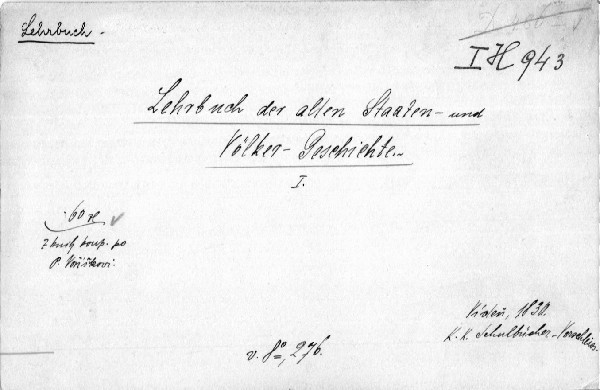 Lehrbuch -
I H 943
Lehrbuch der alten Staaten- und
Völker- Geschichte.
I.
60 
z knih koup. po
P.
Vídeň, 1830.
K. k. Schulbücher-Verschleiss.
v. 8º, 276.